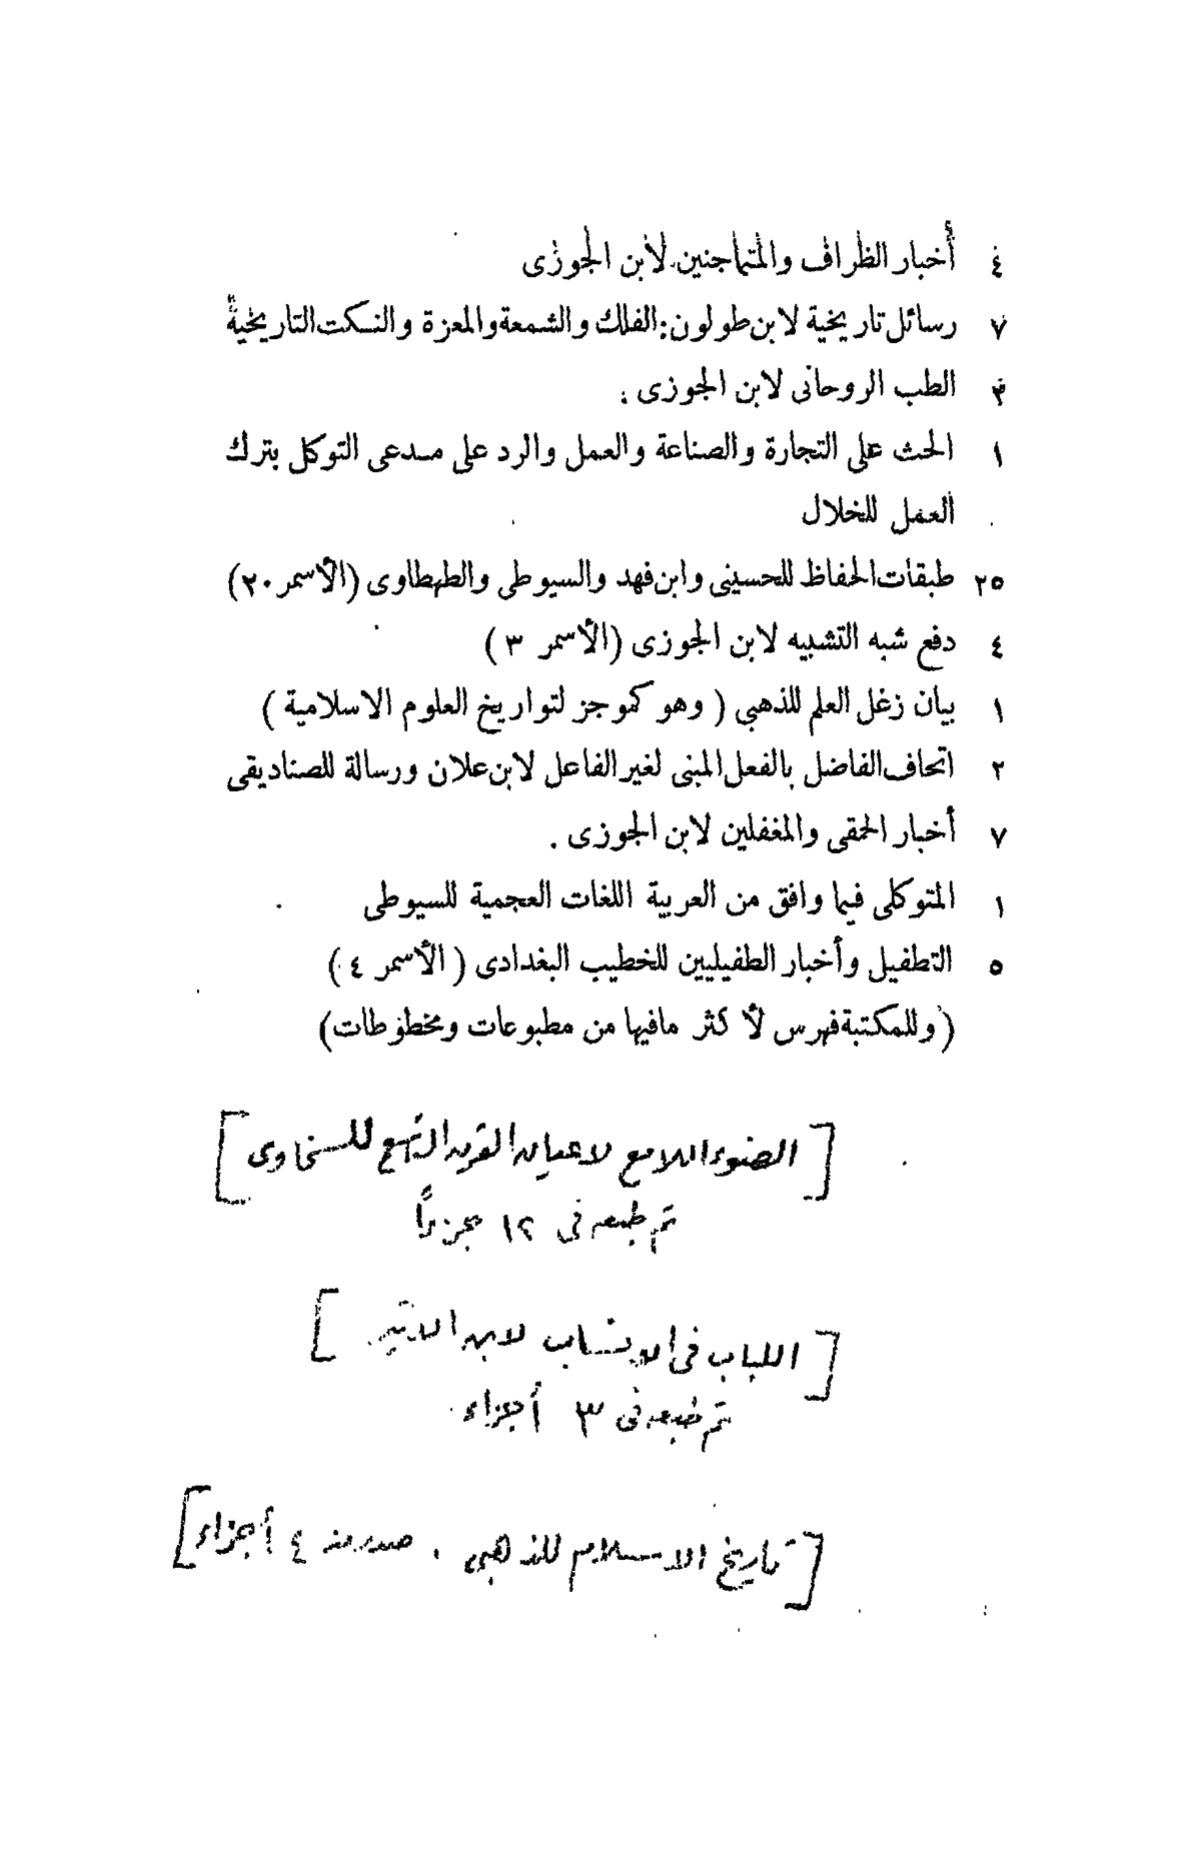 ٤ أخبار الظراف والمتماجنين لابن الجوزى
٧ رسائل تاريخية لابن طولون: الفلك والشمعة والمعزة والنكت التاريخية
٣ الطب الروحانى لابن الجوزى .
١ الحث على التجارة والصناعة والعمل والرد على مدعى التوكل بترك
العمل للخلال
٢٥ طبقات الحفاظ للحسينى وابن فهد والسيوطى والطهطاوى (الأسمر ٢٠)
٤ دفع شبه التشبيه لابن الجوزى (الأسمر ٣ )
١ بيان زغل العلم للذهبي ( وهو كموجز لتواريخ العلوم الاسلامية )
٢ اتحاف الفاضل بالفعل المبنى لغير الفاعل لابن علان ورسالة للصناديقى
٧ أخبار الحمقى والمغفلين لابن الجوزى .
١ المتوكلى فيما وافق من العربية اللغات العجمية للسيوطى
٥ التطفيل وأخبار الطفيليين للخطيب البغدادى ( الأسمر ٤ )
( وللمكتبة فهرس لأكثر مافيها من مطبوعات ومخطوطات)
[الضوء اللامع لاعيان القرن التاسع للسخاوى]
تم طبعه فى ١٢ جزءاً
[اللباب فى الانساب لابن الاثير]
تم طبعه فى ٣ أجزاء
[تاريخ الاسلام للذهبى . صدر منه ٤ أجزاء]